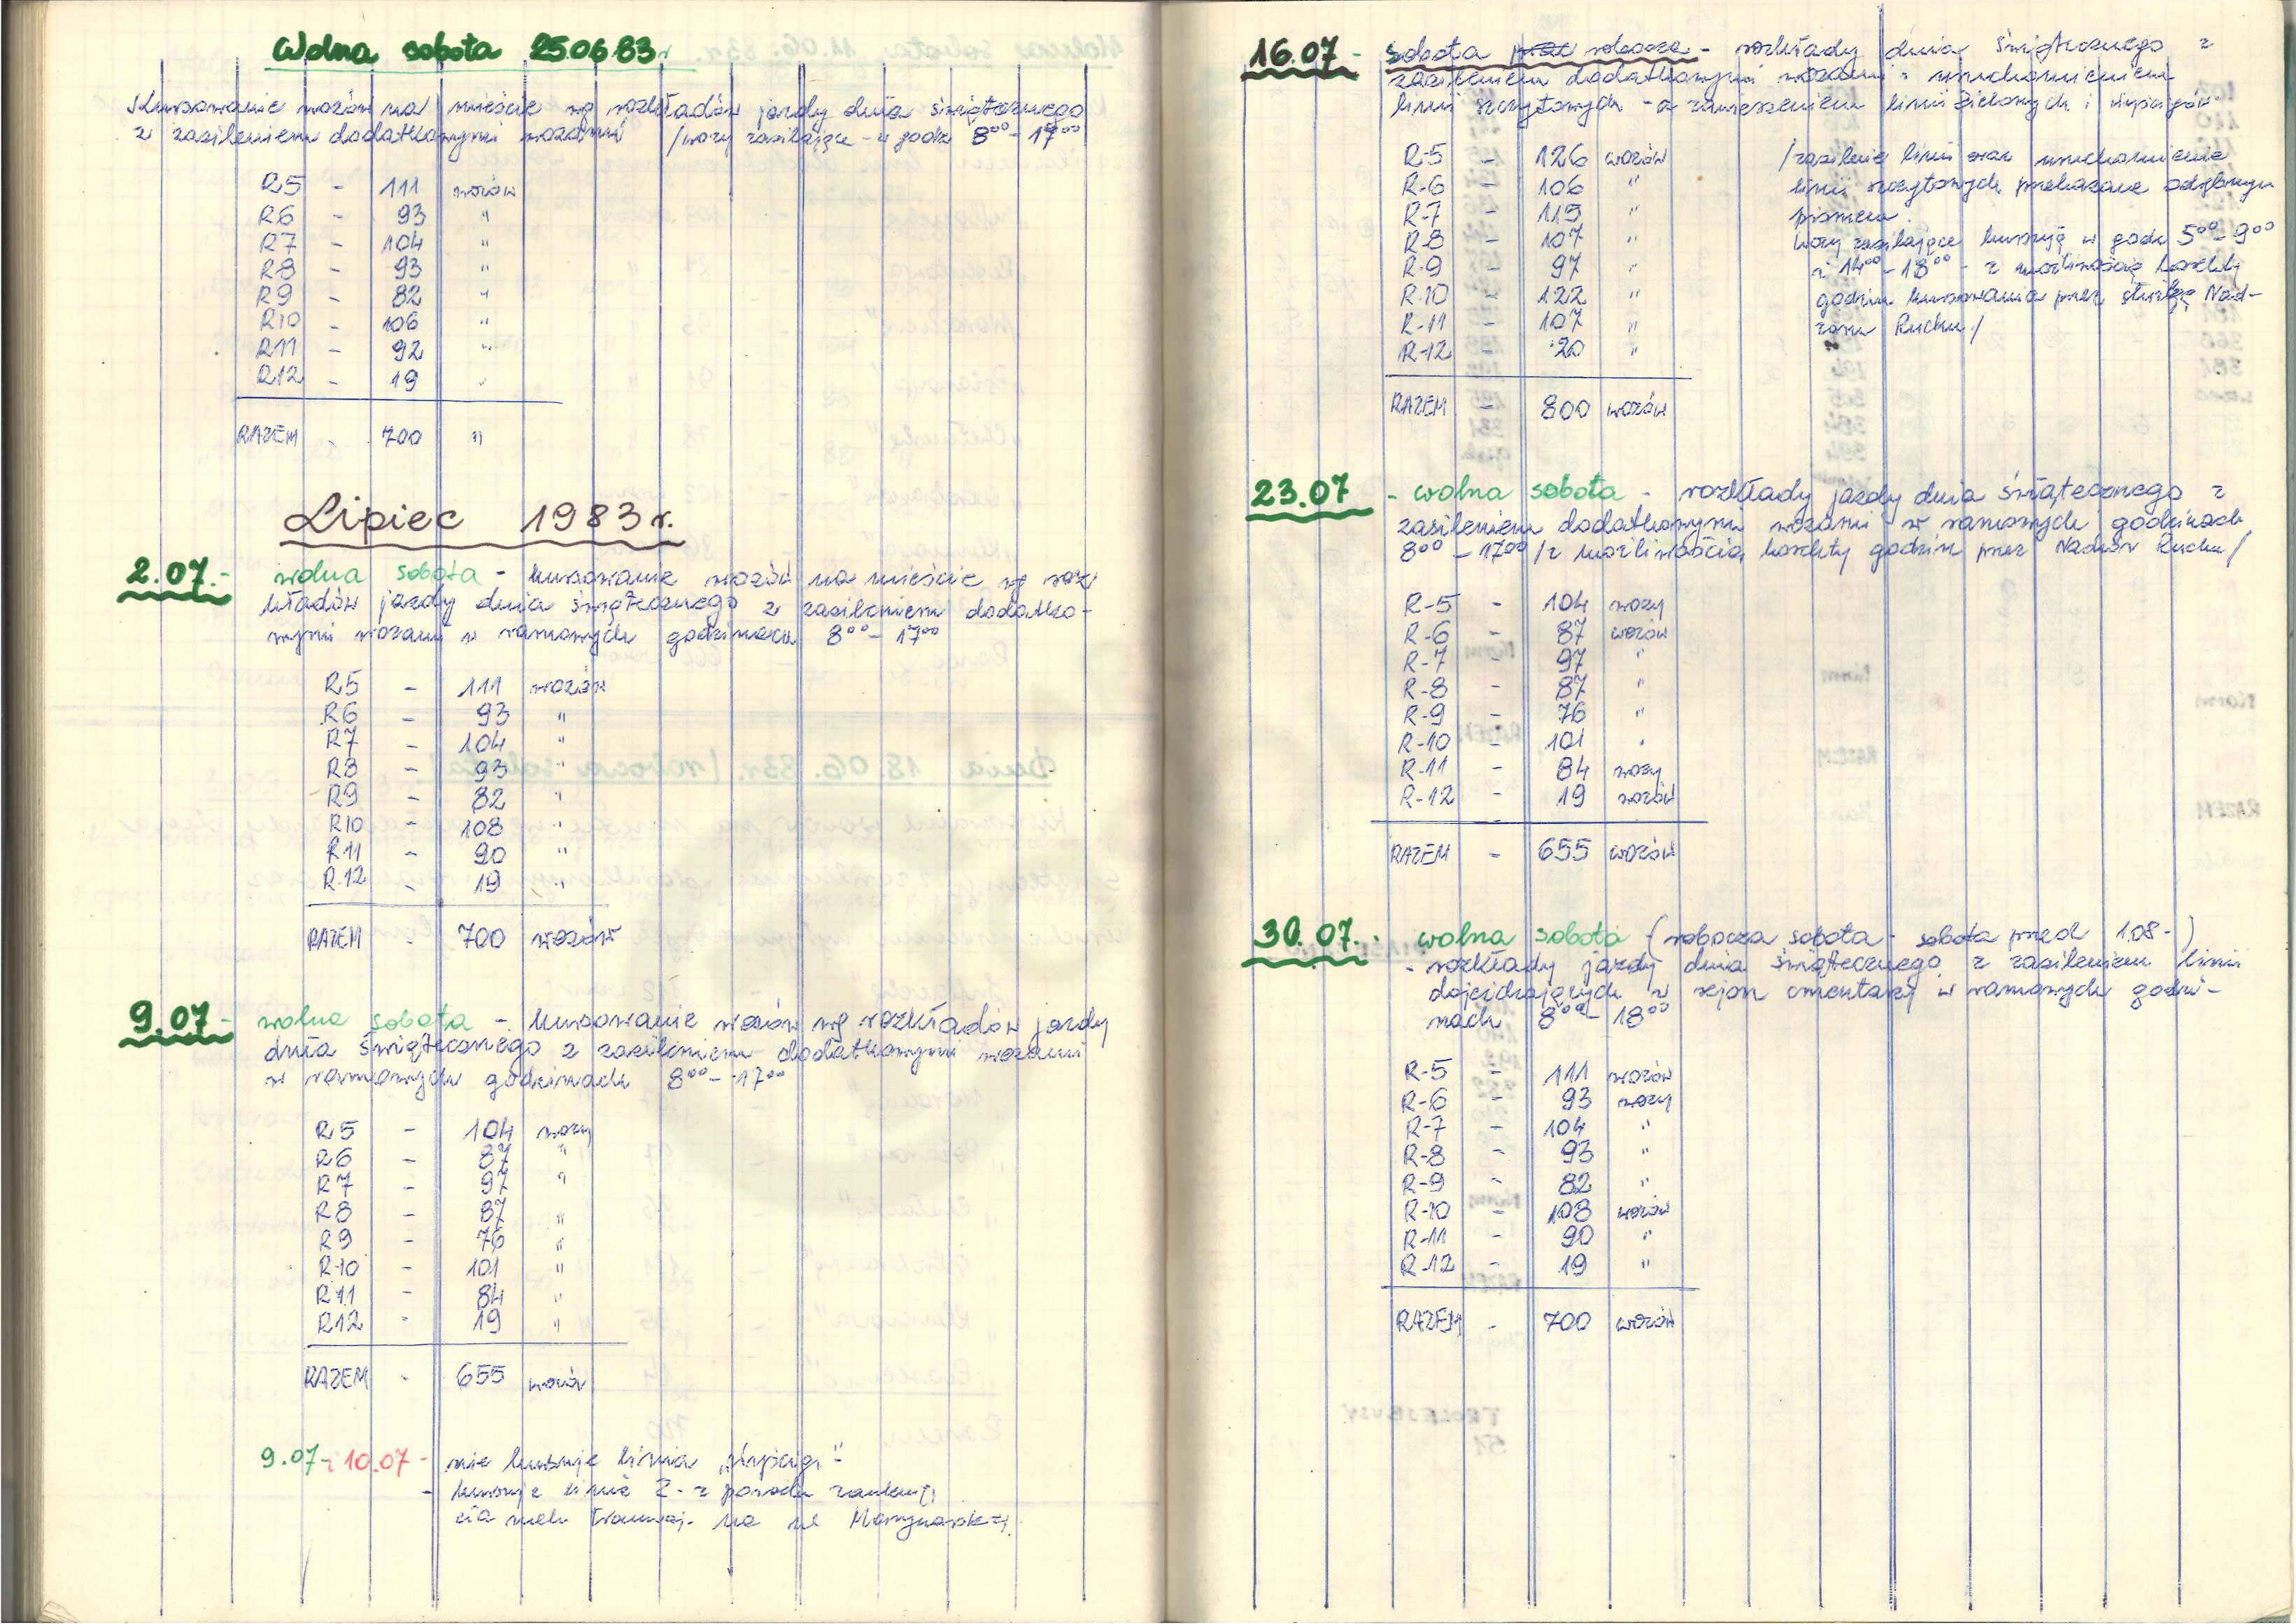 Wolna sobota 25.06.83r
Kursowanie wozów na mieście wg rozkładów jazdy dnia świątecznego
z zasileniem dodatkowymi wozami /wozy zasilające - w godz 8⁰⁰ - 17⁰⁰
R5 - 111 wozów
R6 - 93 "
R7 - 104 "
R8 - 93 "
R9 - 82 "
R10 - 106 "
R11 - 92 "
R12 - 19 "
RAZEM - 700 "
Lipiec 1983 r.
2.07. - wolna sobota - kursowanie wozów na mieście wg roz-
kładów jazdy dnia świątecznego z zasileniem dodatko-
wymi wozami w ramowych godzinach 8⁰⁰ - 17⁰⁰
R5 - 111 wozów
R6 - 93 "
R7 - 104 "
R8 - 93 "
R9 - 82 "
R10 - 108 "
R11 - 90 "
R-12 - 19 "
RAZEM - 700 wozów
9.07 - wolna sobota - kursowanie wozów wg rozkładów jazdy
dnia świątecznego z zasileniem dodatkowymi wozami
w ramowych godzinach 8⁰⁰ - 17⁰⁰
R5 - 104 wozy
R6 - 87 "
R7 - 97 "
R8 - 87 "
R9 - 76 "
R-10 - 101 "
R11 - 84 "
R12 - 19 "
RAZEM - 655 wozów
9.07 i 10.07 - nie kursuje linia „Wyścigi"
- kursuje linia Z - z powodu zamknię
cia ruchu tramwaj. na ul Marynarskiej
16.07 - sobota robocza - rozkłady dnia świątecznego z
zasileniem dodatkowymi wozami i uruchomieniem
linii szczytowych - a zawieszeniem linii zielonych i wyścigów
R-5 - 126 wozów
R-6 - 106 "
R-7 - 115 "
R-8 - 107 "
R-9 - 97 "
R-10 - 122 "
R-11 - 107 "
R-12 - 20 "
RAZEM - 800 wozów
/zasilenie linii oraz uruchomienie
linii szczytowych przekazane odrębnym
pismem.
Wozy zasilające kursują w godz 5⁰⁰ - 9⁰⁰
i 14⁰⁰ - 18⁰⁰ - z możliwością korekty
godzin kursowania przez służbę Nad-
zoru Ruchu/
23.07 - wolna sobota - rozkłady jazdy dnia świątecznego z
zasileniem dodatkowymi wozami w ramowych godzinach
8⁰⁰ - 17⁰⁰ /z możliwością korekty godzin przez Nadzór Ruchu/
R-5 - 104 wozy
R-6 - 87 wozów
R-7 - 97 "
R-8 - 87 "
R-9 - 76 "
R-10 - 101 "
R-11 - 84 wozy
R-12 - 19 wozów
RAZEM - 655 wozów
30.07. - wolna sobota (robocza sobota - sobota przed 1.08 -)
- rozkłady jazdy dnia świątecznego z zasileniem linii
dojeżdżających w rejon cmentarzy w ramowych godzi-
nach 8⁰⁰ - 18⁰⁰
R-5 - 111 wozów
R-6 - 93 wozy
R-7 - 104 "
R-8 - 93 "
R-9 - 82 "
R-10 - 108 wozów
R-11 - 90 "
R-12 - 19 "
RAZEM - 700 wozów